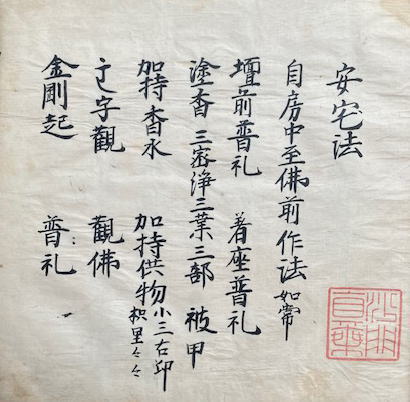 安宅法
自房中至佛前作法如常
壇前普礼 着座普礼
塗香 三密浄三業三部 被甲
加持香水 加持供物小三右印枳里々々
字觀 觀佛
金剛起 普礼